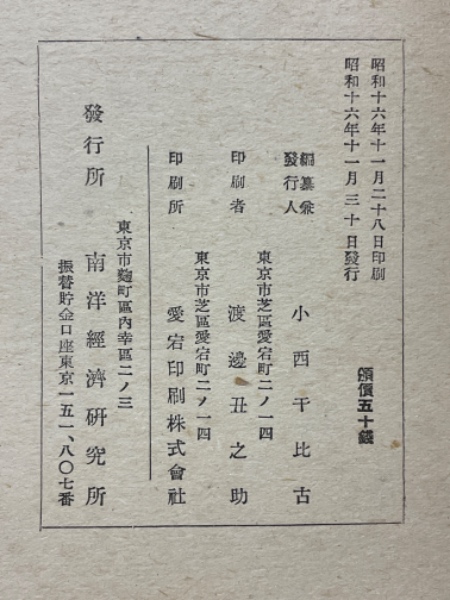 昭和十六年十一月二十八日印刷
昭和十六年十一月三十日發行
頒價五十錢
編纂兼
發行人
小西干比古
東京市芝區愛宕町二ノ一四
印刷者
渡邊丑之助
東京市芝區愛宕町二ノ一四
印刷所
愛宕印刷株式會社
東京市麴町區內幸區二ノ三
發行所
南洋經濟研究所
振替貯金口座東京一五一、八〇七番